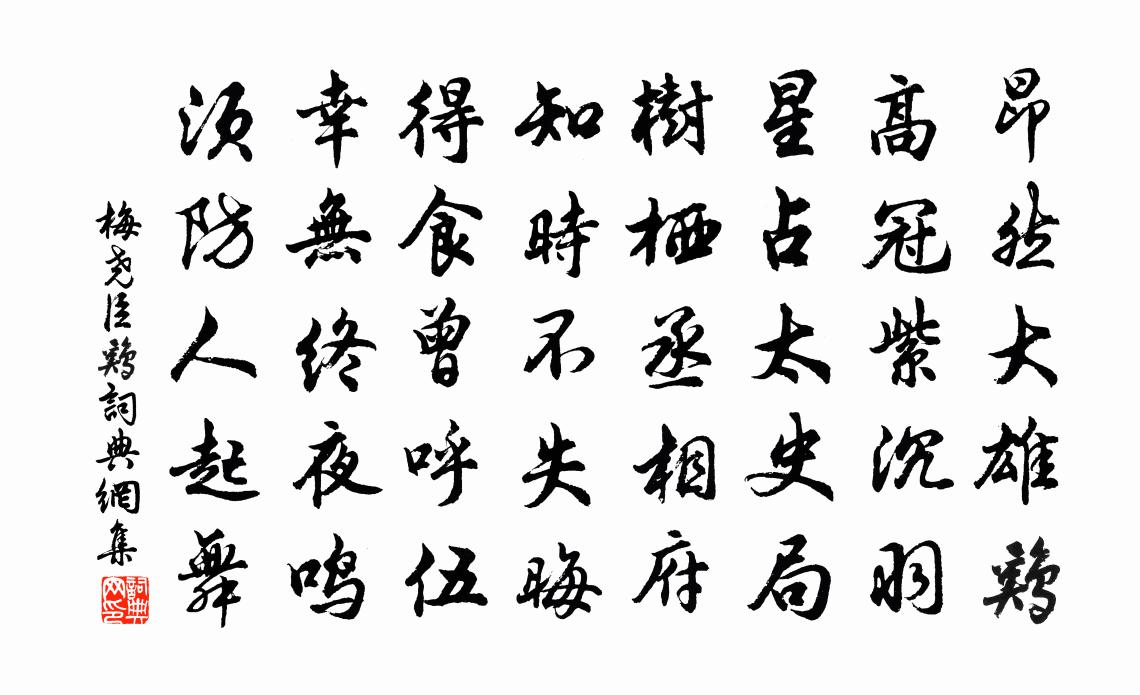 昂然大雄鷄
高冠紫沉羽
星占太史局
樹栖丞相府
知時不失晦
得食曾呼伍
幸無終夜鳴
須防人起舞
梅尧臣鷄詞典網集
詞典网印